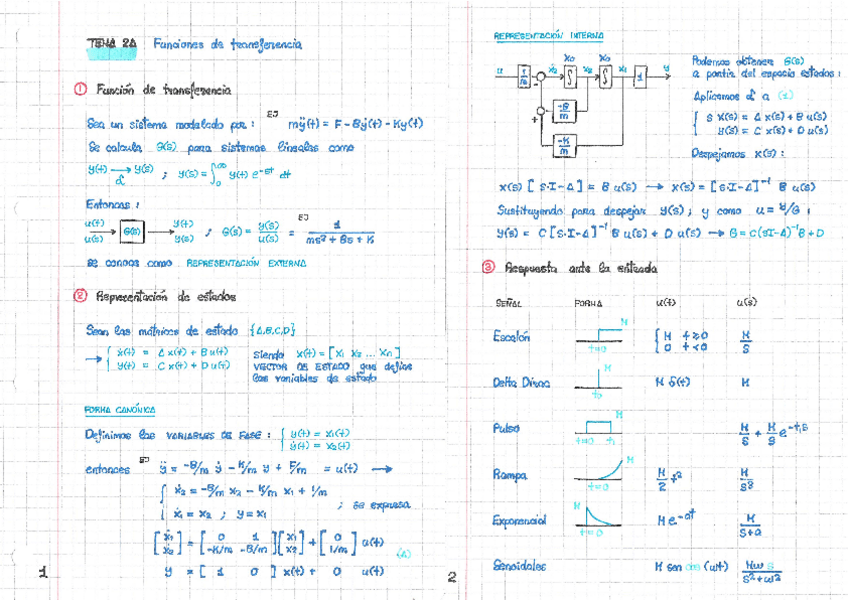 TEMA 2A Funciones de transferencia
① Función de transferencia
Sea un sistema modelado por : EJ mÿ(t) = F - Bẏ(t) - Ky(t)
Se calcula G(s) para sistemas lineales como
y(t) → y(s) ; y(s) = ∫₀^∞ y(t) e^-st dt
ℒ
Entonces :
u(t) → G(s) → y(t) ; G(s) = y(s)/u(s) = EJ 1/(ms² + Bs + K)
u(s) y(s)
se conoce como REPRESENTACIÓN EXTERNA
② Representación de estados
Sean las matrices de estado {A,B,C,D}
→ { ẋ(t) = A x(t) + B u(t) siendo x(t) = [x₁ x₂ ... xn]
y(t) = C x(t) + D u(t) VECTOR DE ESTADO que define
las variables de estado
FORMA CANÓNICA
Definimos las VARIABLES DE FASE : { y(t) = x₁(t)
ẏ(t) = x₂(t)
entonces EJ ÿ = -B/m ẏ - K/m y + F/m = u(t) →
{ ẋ₂ = -B/m x₂ - K/m x₁ + 1/m
; se expresa
ẋ₁ = x₂ ; y = x₁
[ẋ₁ ẋ₂] = [0 1 -K/m -B/m] [x₁ x₂] + [0 1/m] u(t)
(1)
y = [ 1 0 ] x(t) + 0 u(t)
1
REPRESENTACIÓN INTERNA
u 1/m ẋ₂ ∫ x₂ ∫ x₁ 1 y
x₀ x₀
-
+
-B/m
-K/m
Podemos obtener G(s)
a partir del espacio estados :
Aplicamos ℒ a (1)
{ s x(s) = A x(s) + B u(s)
y(s) = C x(s) + D u(s)
Despejamos x(s) :
x(s) [ s·I - A ] = B u(s) → x(s) = [ s·I - A ]⁻¹ B u(s)
Sustituyendo para despejar y(s) ; y como u = y/G :
y(s) = C [ s·I - A ]⁻¹ B u(s) + D u(s) → G = C(sI-A)⁻¹B + D
③ Respuesta ante la entrada
SEÑAL FORMA u(t) u(s)
Escalón M t=0 { M t ≥ 0 M/s
0 t < 0
Delta Dirac M M δ(t) M
Pulso M t=0 t₁ M/s + M/s e^-t₁s
Rampa M t=0 M/2 t² M/s³
Exponencial M t=0 M e^-at M/(s+a)
Senoidales M sen cos (ωt) Mω s/(s² + ω²)
2